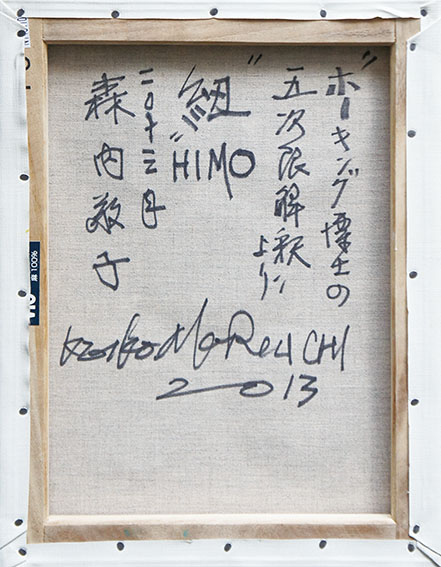 "ホーキング博士の
五次限解釈より"
"紐"
"HIMO
二〇十三年
森内敬子
Keiko MoReUCHI
2013
麻 100%